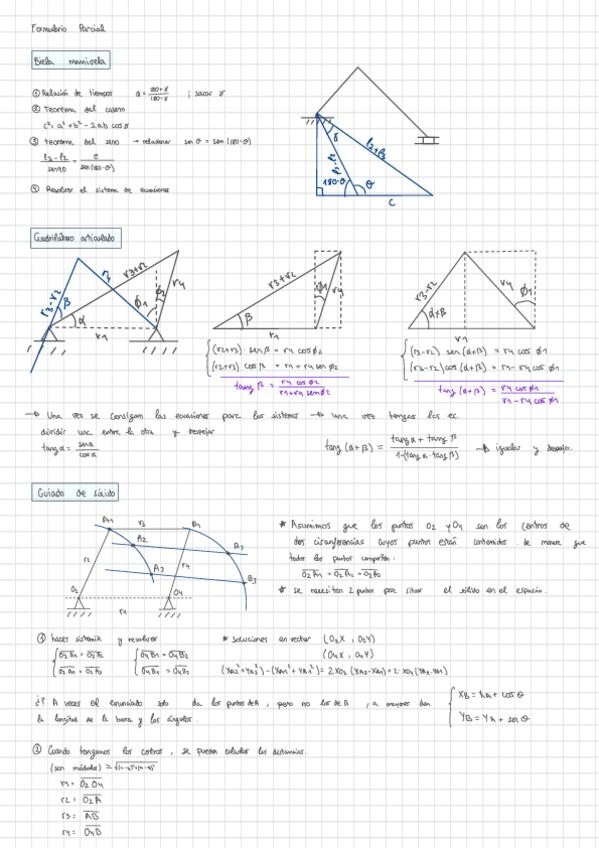 Formulario Parcial
Biela manivela
① Relación de tiempos a = 180+γ / 180-γ ; sacar γ
② Teorema del coseno
c² = a² + b² - 2ab cos γ
③ Teorema del seno → relacionar sen θ = sen (180-θ)
l3-l2 / sen90 = c / sen(180-θ)
④ Resolver el sistema de ecuaciones
γ
l2+l3
180-θ
θ
c
Cuadrilátero articulado
r3-r2
β
α
r4
r3+r2
ϕ1
ϕ2
r4
r1
r3+r2
β
ϕ2
r4
r1
r3-r2
α+β
r4
ϕ1
r1
(r2+r3) · sen β = r4 cos ϕ2
(r2+r3) cos β = r1 + r4 sen ϕ2
tang β = r4 cos ϕ2 / r1 + r4 sen ϕ2
(r3-r2) sen (α+β) = r4 cos ϕ1
(r3-r2) cos (α+β) = r1 - r4 cos ϕ1
tang (α+β) = r4 cos ϕ1 / r1 - r4 cos ϕ1
→ Una vez se consigan las ecuaciones para los sistemas → una vez tengas las ec.
dividir una entre la otra y despejar
tang α = sen α / cos α
tang (α+β) = tang α + tang β / 1-(tang α · tang β) → igualar y despejo.
Guiado de sólido
A1
r3
B1
A2
B2
A3
B3
r2
r4
O2
O4
r1
* Asumimos que los puntos O2 y O4 son los centros de
dos circunferencias cuyos puntos están contenidos de manera que
todos los puntos comparten:
O2A1 = O2A2 = O2A3
* se necesitan 2 puntos por situar el sólido en el espacio.
① hacer sistema y resolver
O2A1 = O2A2
O2A1 = O2A3
O4B1 = O4B2
O4B1 = O4B3
* soluciones en vector (O2X , O2Y)
(O4X , O4Y)
(XA2² + YA2²) - (XA1² + YA1²) = 2·XO2 (XA2-XA1) + 2·YO2 (YA2-YA1)
¿? A veces el enunciado solo da los puntos de A , pero no los de B , a mayores dan
la longitud de la barra y los ángulos.
XB = XA + cos θ
YB = YA + sen θ
② Cuando tengamos los centros , se pueden calcular las distancias.
(son módulos)
r1 = O2O4
r2 = O2A
r3 = AB
r4 = O4B